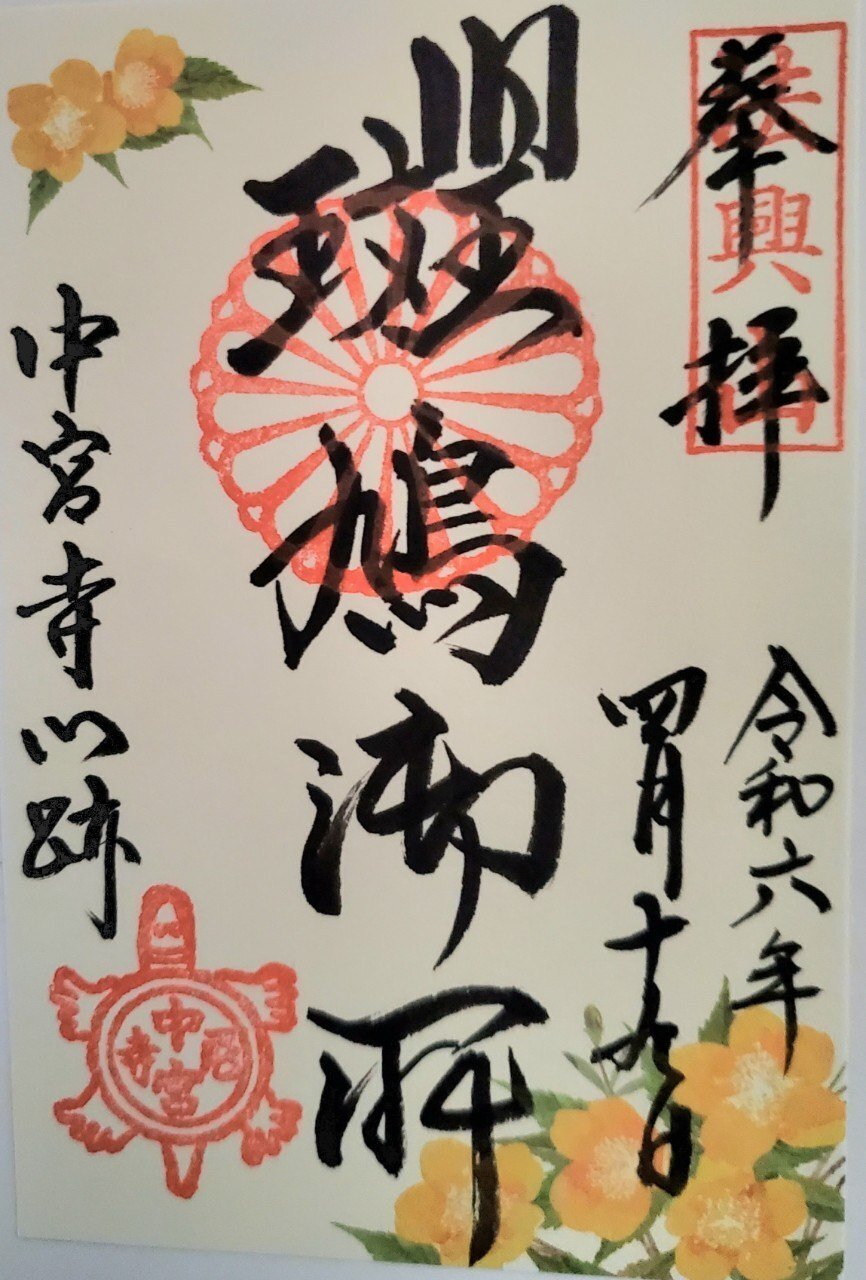 奉拝
法興山
令和六年
四月十九日
旧斑鳩御所
中宮寺門跡
中宮尼寺